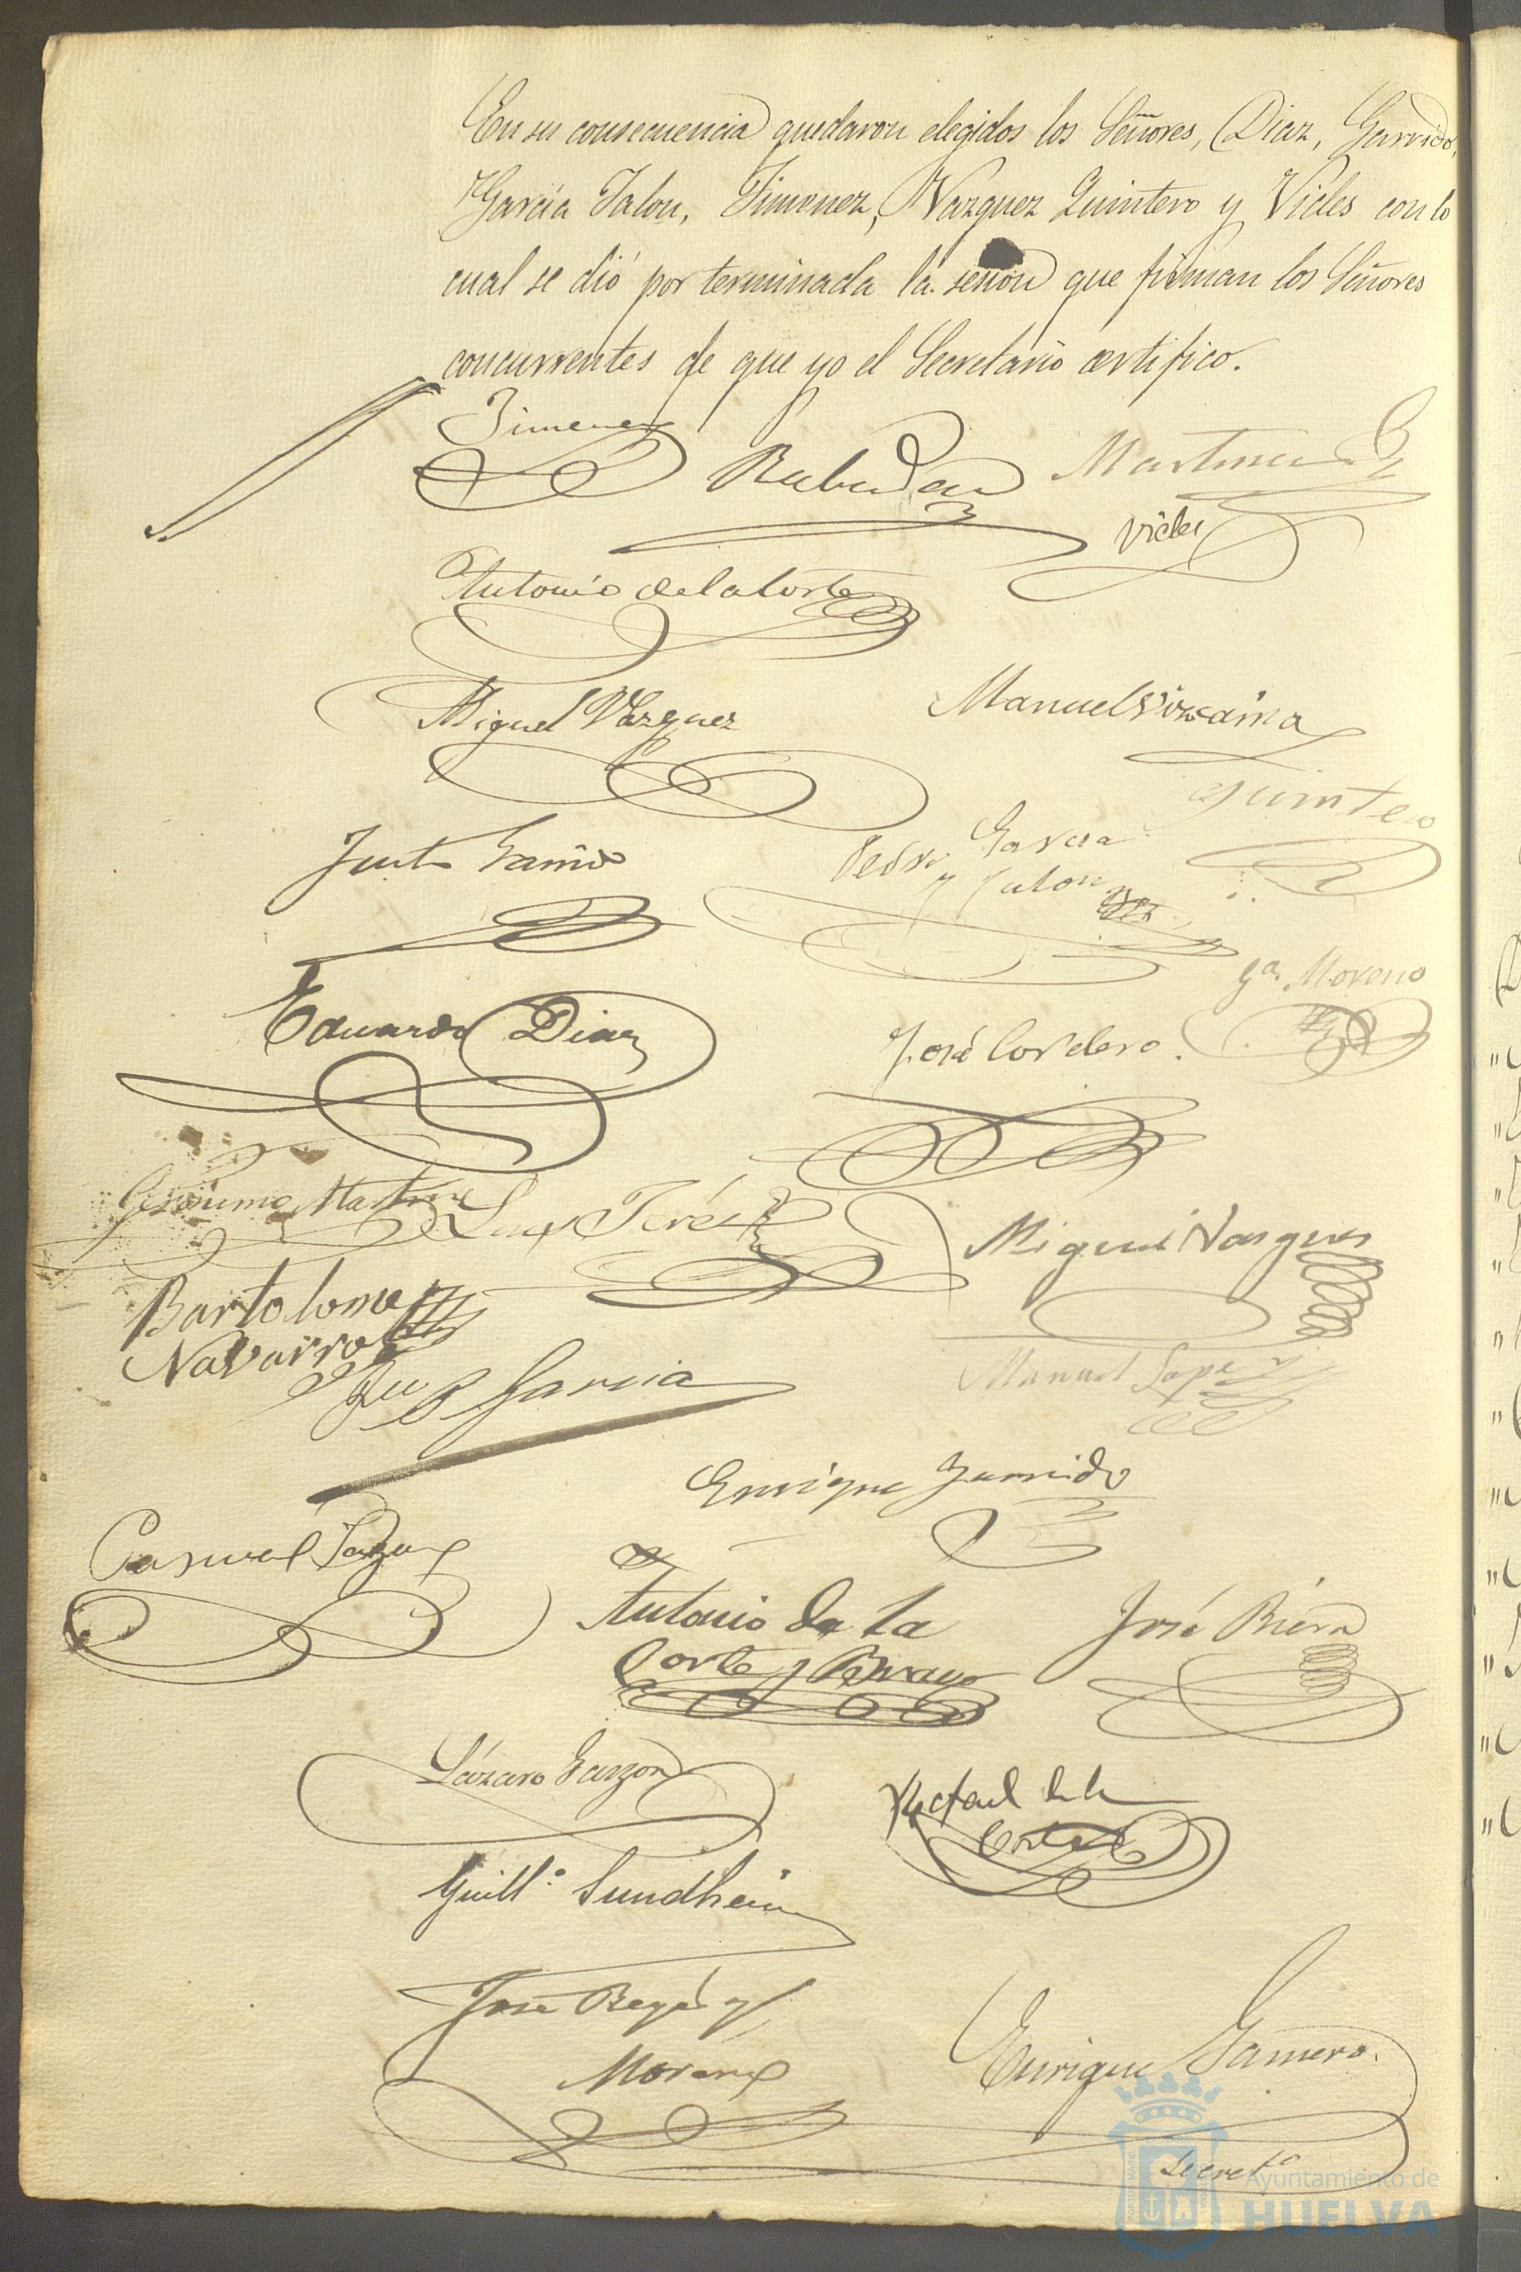 En su consecuencia quedaron elegidos los Señores, Diaz, Garrido,
Garcia Talon, Jimenez, Vazquez Quintero y Vides con lo
cual se dió por terminada la sesion que firman los Señores
concurrentes de que yo el Secretario certifico.
Jimenez
Rabadan
Martinez
Vides
Antonio de la Corte
Miguel Vazquez
Manuel Vizcaino
Quintero
Justo Garrido
Pedro Garcia
y Talon
Gª Moreno
Eduardo Diaz
José Cordero.
Gerónimo Martin
Miguel Vazquez
Bartolome
Navarro
Garcia
Manuel Lopez
Enrique Garrido
Antonio de la
Corte y Bravo
José
Lázaro Garzon
Rafael de la
Corte
Guillº Sundheim
José
y
Moreno
Enrique Gamero.
Secretº
Ayuntamiento de
HUELVA